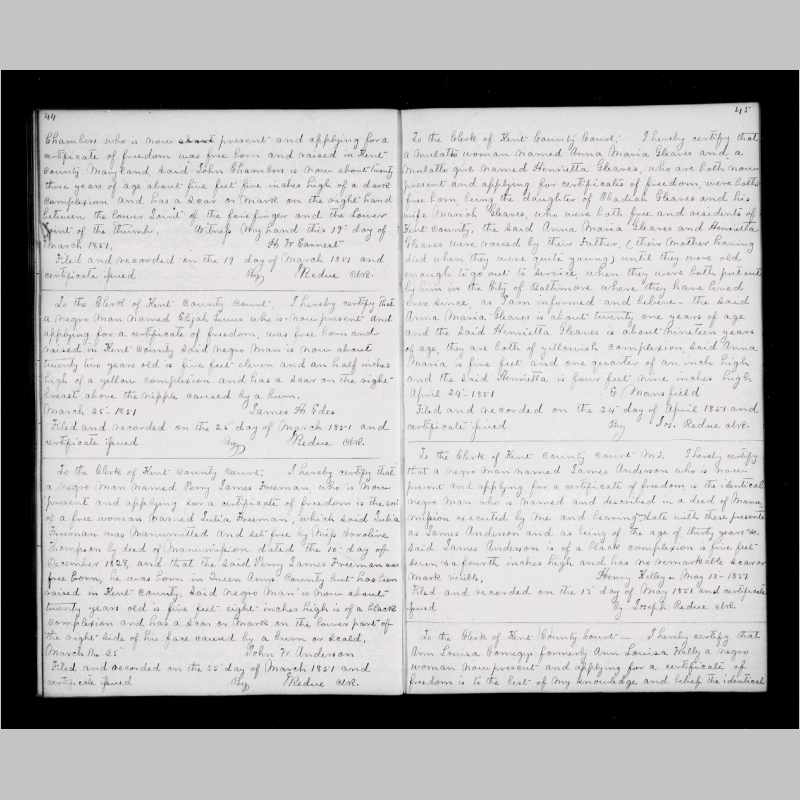 44
Chambers who is now present and applying for a
certificate of freedom was free born and raised in Kent
County Maryland said John Chambers is now about twenty
three years of age about five feet five inches high of a dark
Complexion and has a scar or mark on the right hand
between the lower joint of the fore finger and the lower
joint of the thumb. Witness my hand this 19th day of
March 1851. H W Earnest
Filed and recorded on the 19 day of March 1851 and
certificate issued by J Redue clk.
To the Clerk of Kent County Court. I hereby certify that
a negro man named Elijah who is now present and
applying for a certificate of freedom, was free born and
raised in Kent County said negro man is now about
twenty two years old is five feet eleven and an half inches
high of a yellow complexion and has a scar on the right
breast above the nipple caused by a burn.
March 25th 1851 James H Edes
Filed and recorded on the 25 day of March 1851 and
certificate issued by J Redue clk.
To the Clerk of Kent County Court; I hereby certify that
a negro man named Perry James Freeman who is now
present and applying for a certificate of freedom is the son
of a free woman named Julia Freeman, which said Julia
Freeman was manumitted and set free by Miss Caroline
Thompson by deed of manumission dated the 10th day of
December 1828, and that the said Perry James Freeman was
free born, he was born in Queen Anns County but has been
raised in Kent County. Said negro man is now about
twenty years old is five feet eight inches high is of a black
complexion and has a scar or mark on the lower part of
the right side of his face caused by a burn or scald.
March 25 John W Anderson
Filed and recorded on the 25 day of March 1851 and
certificate issued by J Redue clk.
45
To the Clerk of Kent County Court; I hereby certify that
a mulatto woman named Anna Maria Gleaves and a
mulatto girl named Henrietta Gleaves, who are both now
present and applying for certificates of freedom, were both
free born, being the daughter of Obadiah Gleaves and his
wife Gleaves, who were both free and residents of
Kent County, the said Anna Maria Gleaves and Henrietta
Gleaves were raised by their Father, (their mother having
died when they were quite young) until they were old
enough to go out to service, when they were both put out
by him in the City of Baltimore where they have lived
ever since, as I am informed and believe - the said
Anna Maria Gleaves is about twenty one years of age
and the said Henrietta Gleaves is about nineteen years
of age, they are both of yellowish complexion, said Anna
Maria is five feet and one quarter of an inch high
and the said Henrietta is four feet nine inches high
April 24th 1851 G Mansfield
Filed and recorded on the 24th day of April 1851 and
certificate issued by Jos. Redue clk.
To the Clerk of Kent County Court Md. I hereby certify
that a negro man named James Anderson who is now
present and applying for a certificate of freedom is the identical
negro man who is named and described in a deed of Manu
mission executed by me and bearing date with these presents
as James Anderson and as being of the age of thirty years &c.
Said James Anderson is of a black complexion is five feet
seven & a fourth inches high and has no remarkable scar or
mark visible. Henry Kelley - May 15 - 1851
Filed and recorded on the 15th day of May 1851 and certificate
issued By Joseph Redue clk.
To the Clerk of Kent County Court - I hereby certify that
Ann Louisa Comegys formerly Ann Louisa a negro
woman now present and applying for a certificate of
freedom is to the best of my knowledge and belief the identical